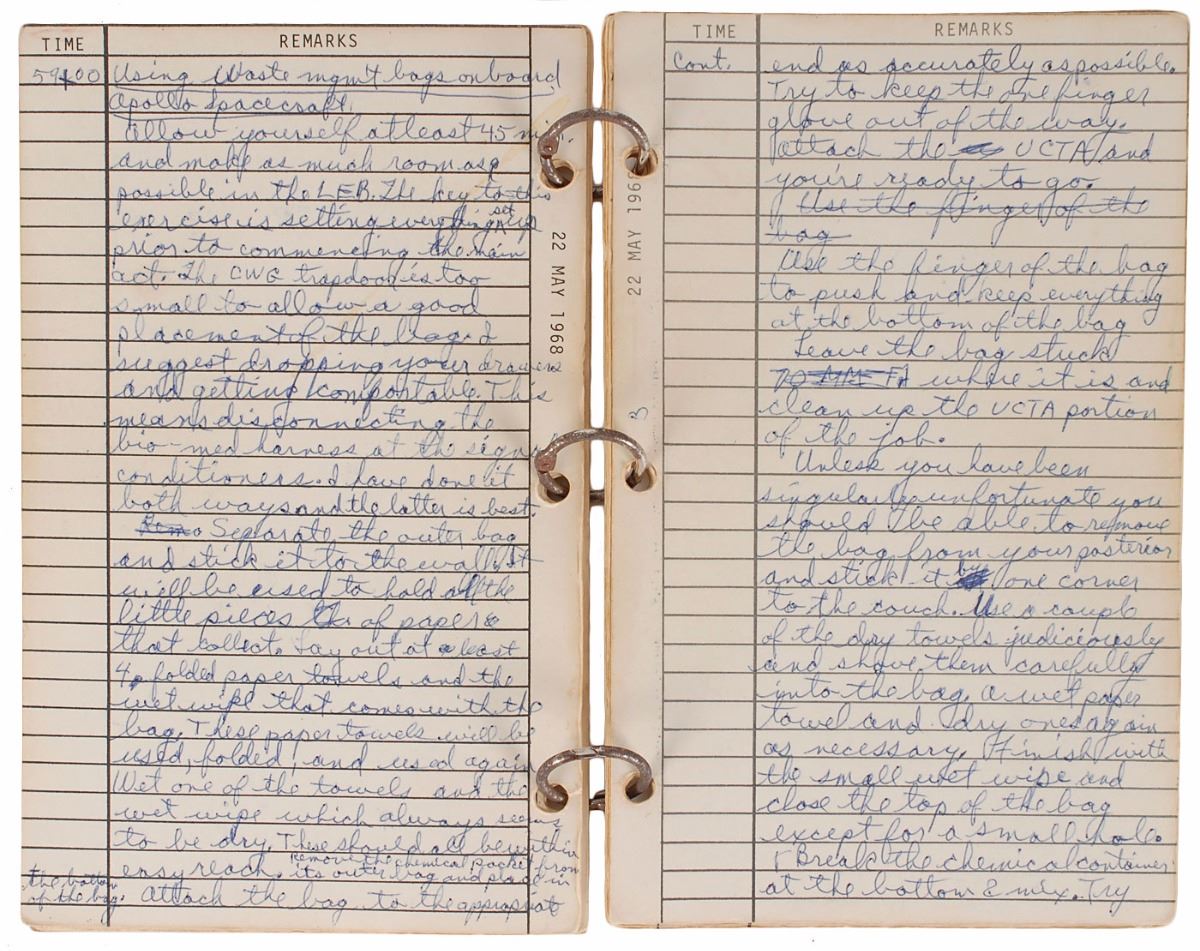 TIME REMARKS
59400 Using Waste mgm't bags onboard
Apollo Spacecraft.
Allow yourself at least 45 min.
and make as much room as
possible in the LEB. The key to this
exercise is setting everything set up
prior to commencing the main
act. The CWG trapdoor is too
small to allow a good
placement of the bag. I
suggest dropping your drawers
and getting comfortable. This
means disconnecting the
bio-med harness at the signal
conditioners. I have done it
both ways and the latter is best.
Remo Separate the outer bag
and stick it to the wall. It
will be used to hold all the
little pieces of paper
that collect. Lay out at least
4 folded paper towels and the
wet wipe that comes with the
bag. These paper towels will be
used, folded, and used again
Wet one of the towels and the
wet wipe which always seems
to be dry. These should all be within
easy reach. Remove the chemical packet from
its outer bag and place in
the bottom
of the bag. Attach the bag to the appropriate
22 MAY 1968
TIME REMARKS
Cont. end as accurately as possible.
Try to keep the one finger
glove out of the way.
Attach the UCTA and
you're ready to go.
Use the finger of the
bag
Use the finger of the bag
to push and keep everything
at the bottom of the bag
Leave the bag stuck
70 MM FA where it is and
clean up the UCTA portion
of the job.
Unless you have been
singularly unfortunate you
should be able to remove
the bag from your posterior
and stick it by one corner
to the couch. Use a couple
of the dry towels judiciously
and shove them carefully
into the bag. A wet paper
towel and dry ones again
as necessary. Finish with
the small wet wipe and
close the top of the bag
except for a small hole.
Break the chemical container
at the bottom & mix. Try
22 MAY 1968
B